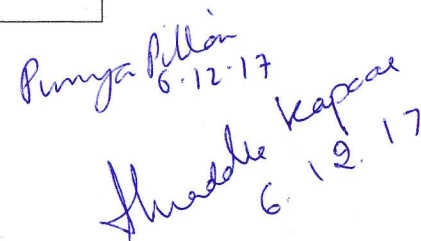 Punya Pillai
6.12.17
Shraddha Kapoor
6.12.17